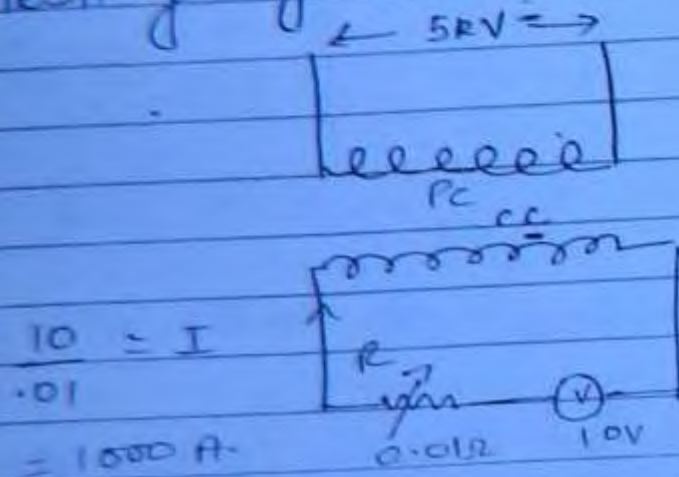 ← 5KV = →
PC
CC
10 = I
.01
R
= 1000 A.
0.01Ω
V
10V